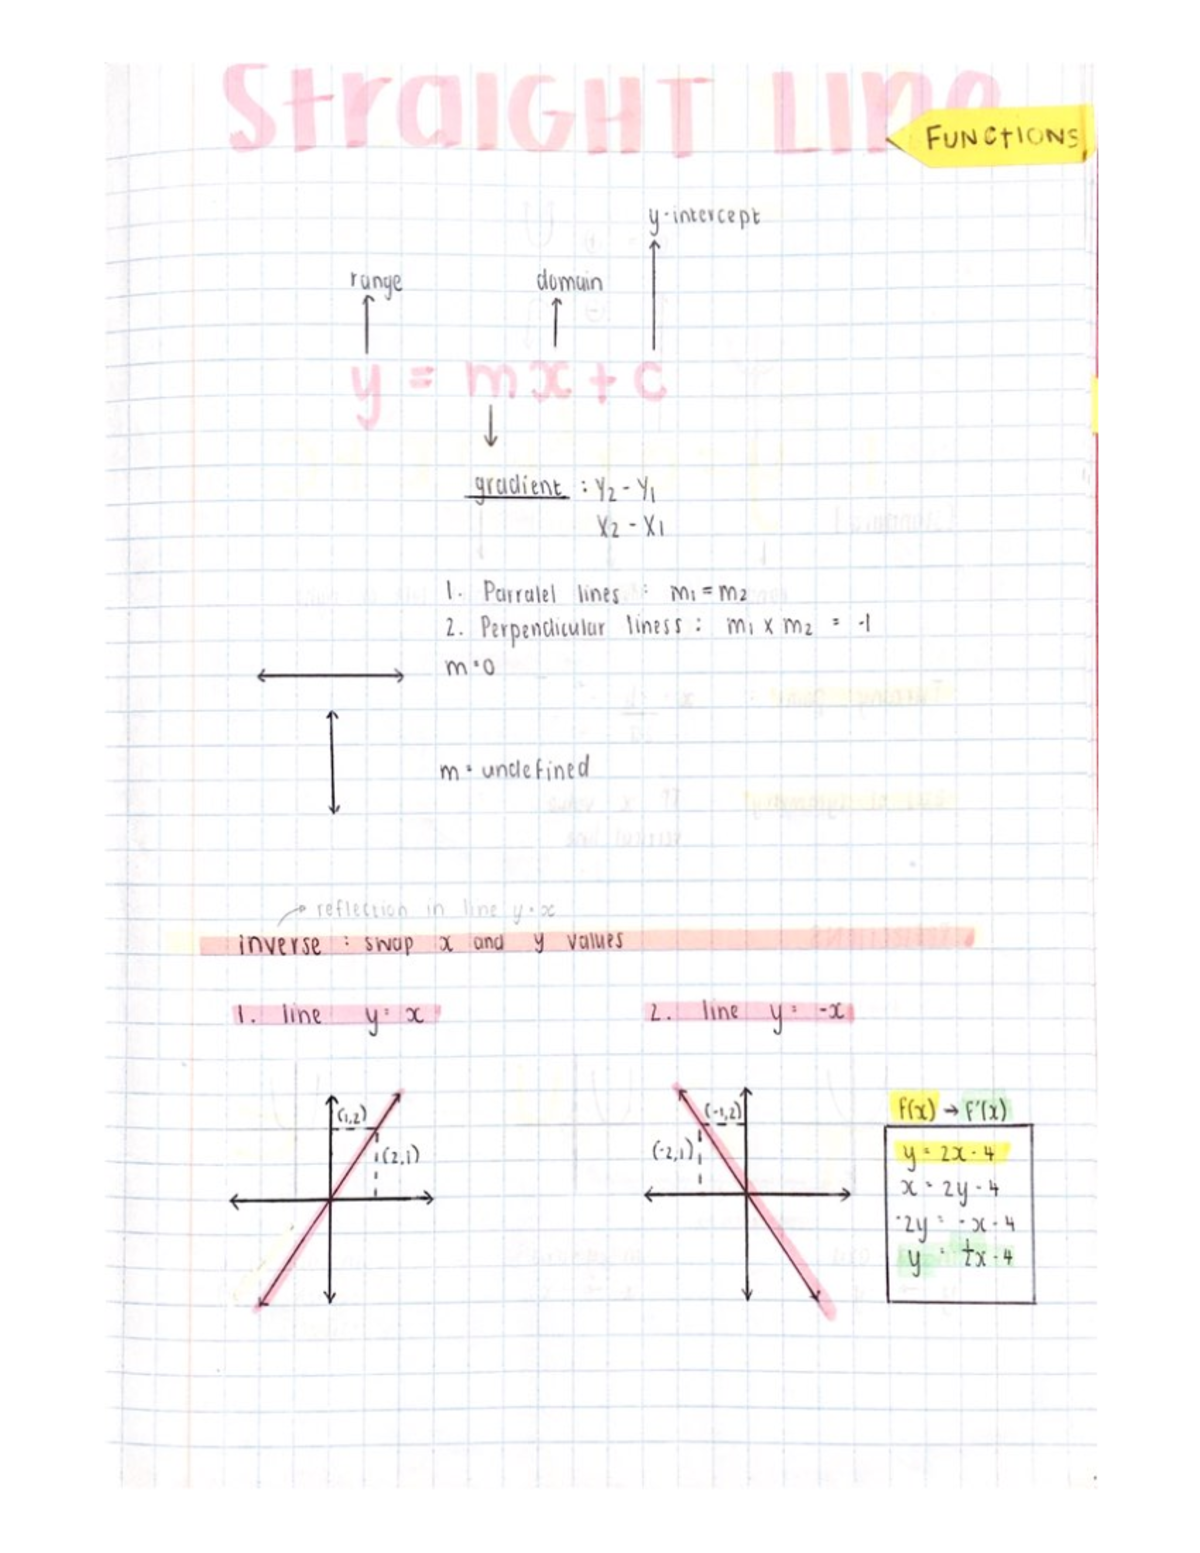 StraIGHT LIne
FUNCtIONS
y-intercept
range domain
y = mx + c
gradient : Y2 - Y1
X2 - X1
1. Parralel lines : m1 = m2
2. Perpendicular liness : m1 x m2 = -1
m=0
m= undefined
reflection in line y=x
inverse : swap x and y values
1. line y= x
2. line y= -x
(1,2)
(2,1)
(-1,2)
(-2,1)
f(x) → F'(x)
y = 2x - 4
x = 2y - 4
-2y = -x - 4
y = 1/2x - 4